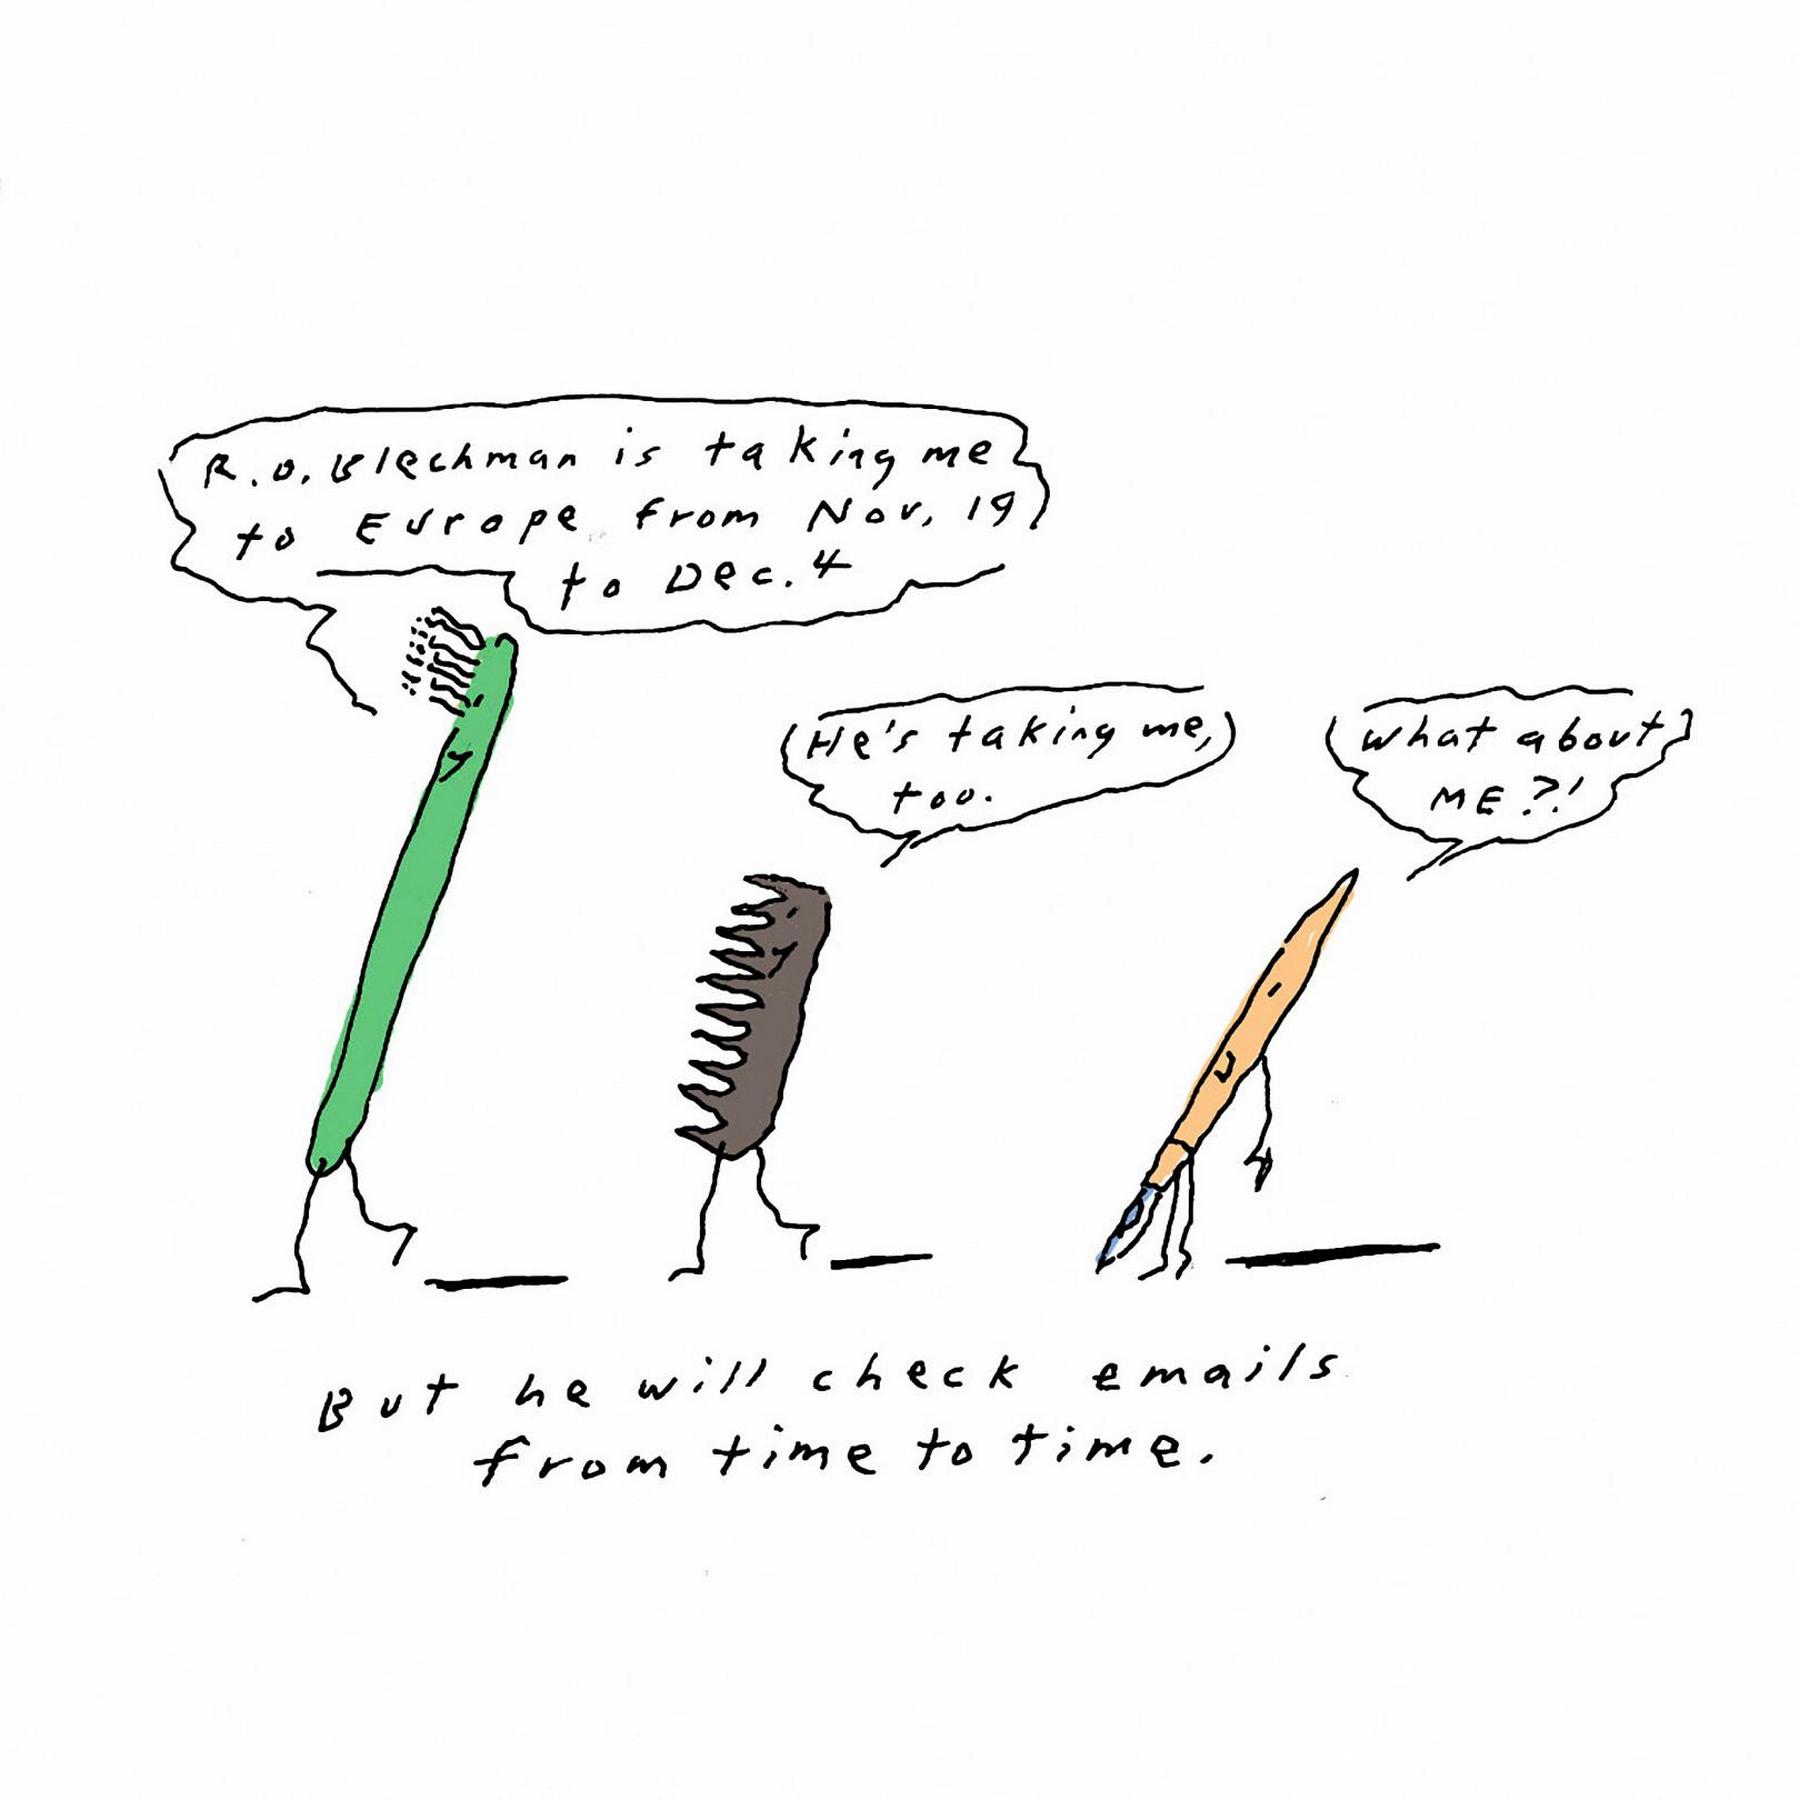 R.O. Blechman is taking me
to Europe from Nov. 19
to Dec. 4
He's taking me,
too.
What about
ME?!
But he will check emails
from time to time.